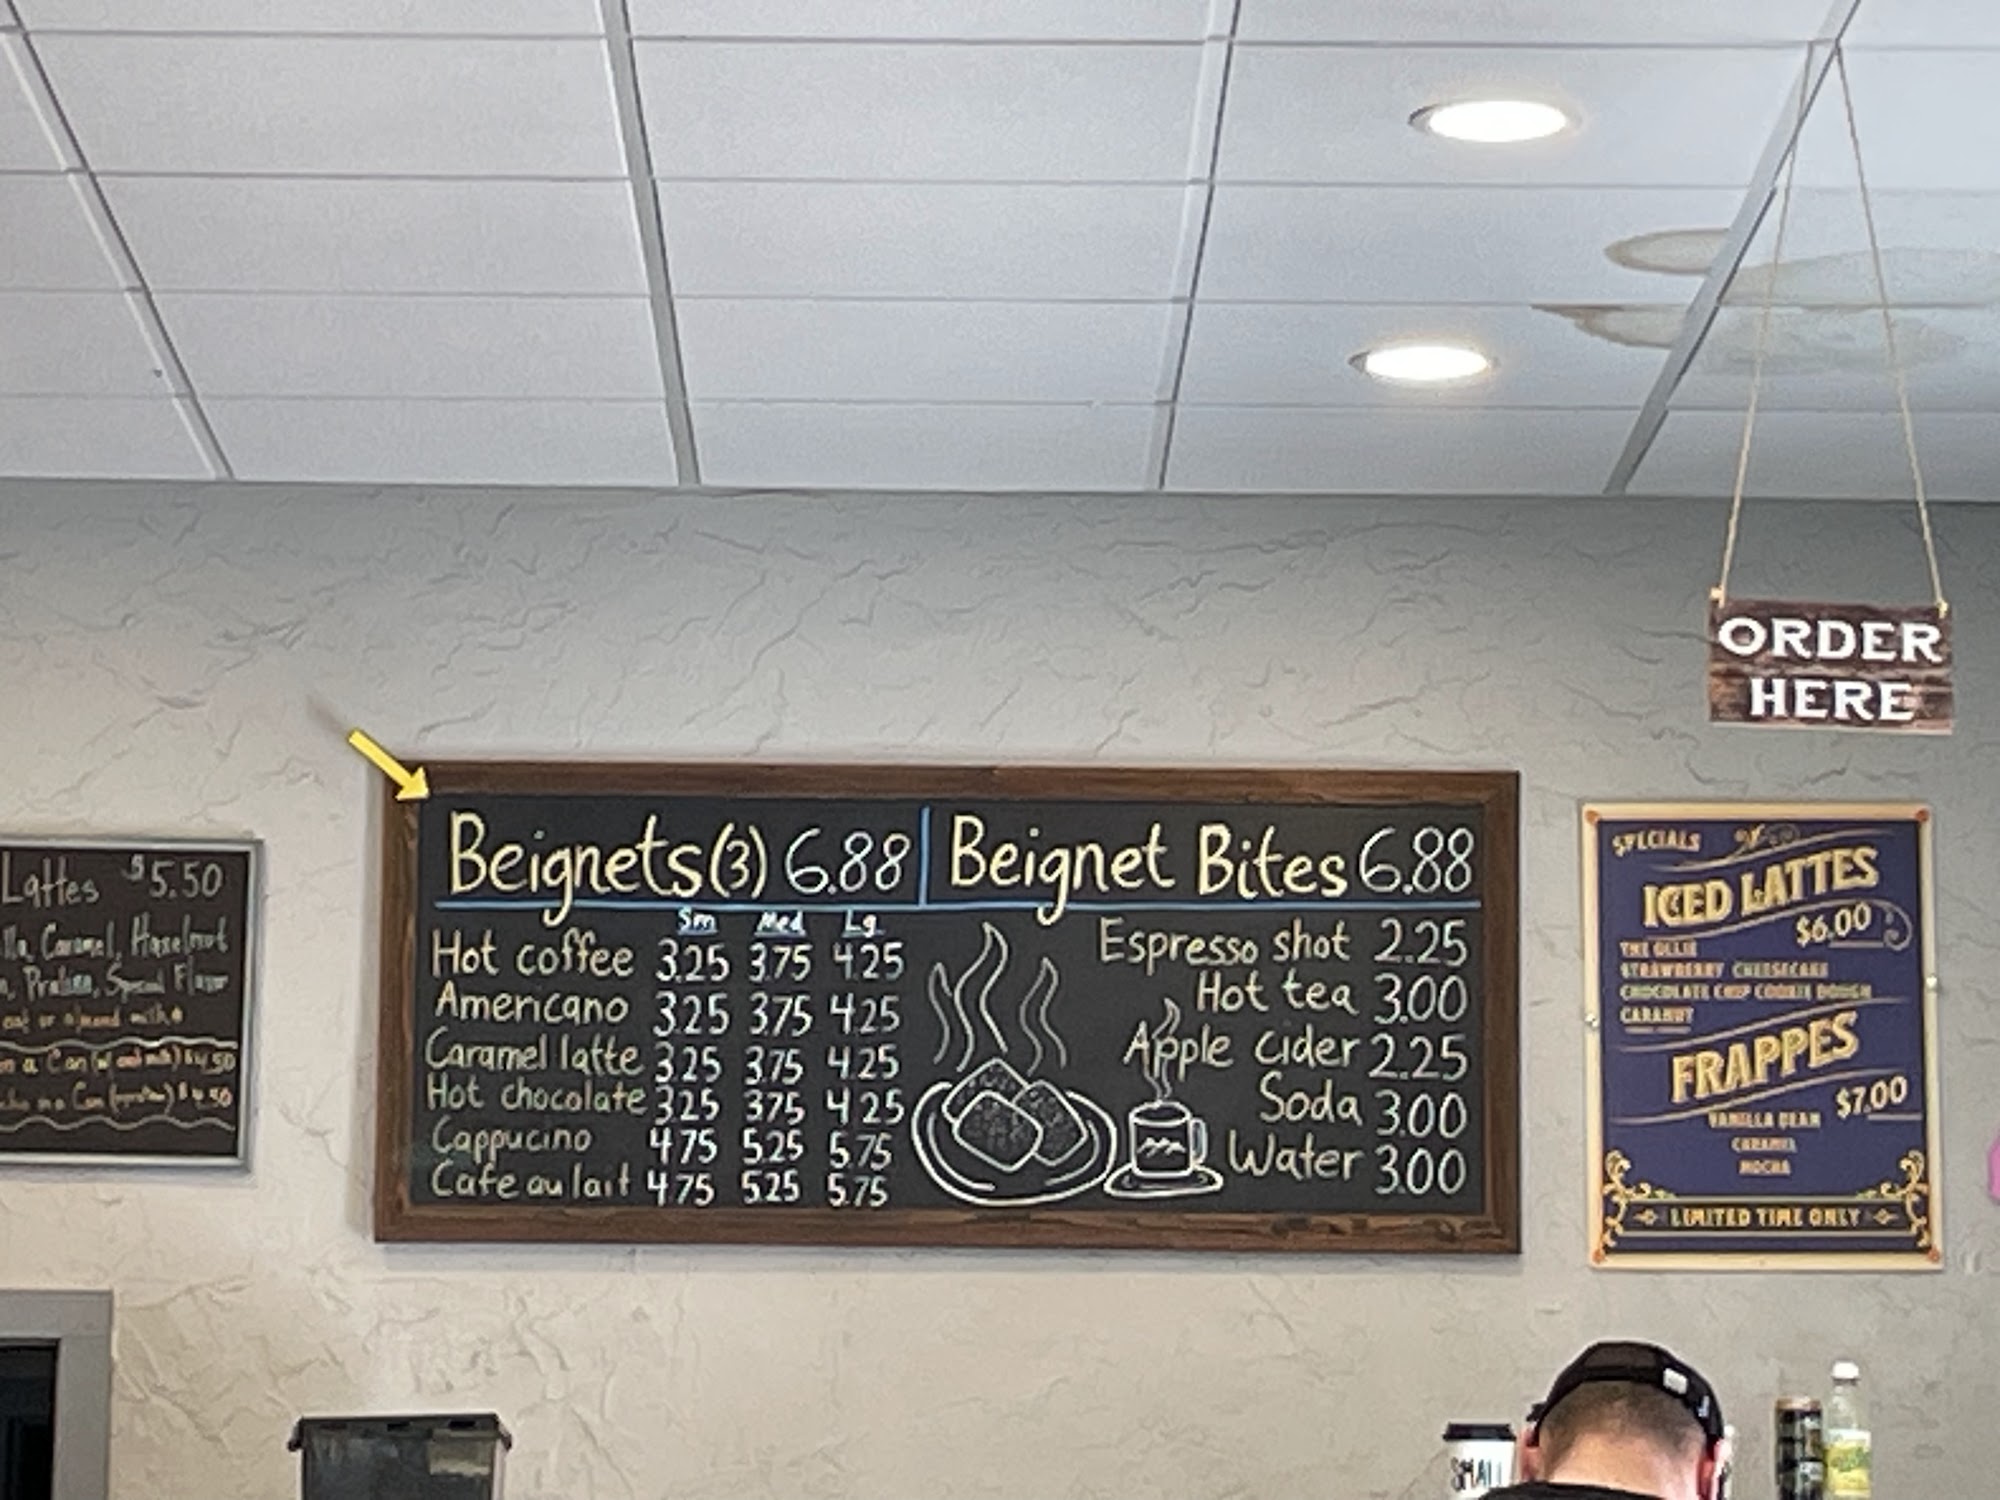 Lattes $5.50
lla, Caramel, Hazelnut
Praline, Special Flavor
oat or almond milk
in a Can $4.50
in a Can $4.50
Beignets (3) 6.88
Beignet Bites 6.88
Sm Med Lg
Hot coffee 3.25 3.75 4.25
Americano 3.25 3.75 4.25
Caramel latte 3.25 3.75 4.25
Hot chocolate 3.25 3.75 4.25
Cappucino 4.75 5.25 5.75
Cafe au lait 4.75 5.25 5.75
Espresso shot 2.25
Hot tea 3.00
Apple cider 2.25
Soda 3.00
Water 3.00
ORDER
HERE
SPECIALS
ICED LATTES
$6.00
THE OLLIE
STRAWBERRY CHEESECAKE
CHOCOLATE CHIP COOKIE DOUGH
FRAPPES
$7.00
VANILLA BEAN
CARAMEL
MOCHA
LIMITED TIME ONLY
SMALL